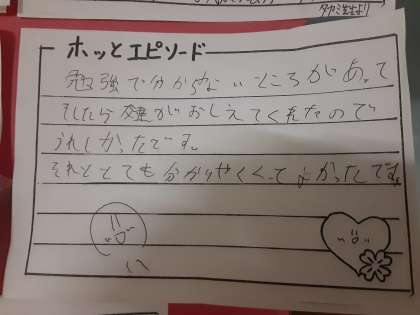 タケミ先生より
ホッとエピソード
勉強で分からないところがあって
そしたら友達がおしえてくれたので
うれしかったです。
それととても分かりやくくってよかったです。